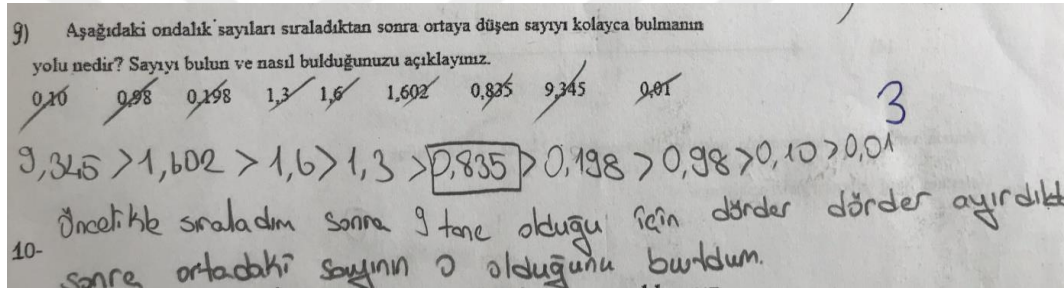 9) Aşağıdaki ondalık sayıları sıraladıktan sonra ortaya düşen sayıyı kolayca bulmanın
yolu nedir? Sayıyı bulun ve nasıl bulduğunuzu açıklayınız.
0,10 0,98 0,198 1,3 1,6 1,602 0,835 9,345 0,01
3
9,345 > 1,602 > 1,6 > 1,3 > 0,835 > 0,198 > 0,98 > 0,10 > 0,01
Öncelikle sıraladım sonra 9 tane olduğu için dörder dörder ayırdıkt
10- sonra ortadaki sayının o olduğunu buldum.